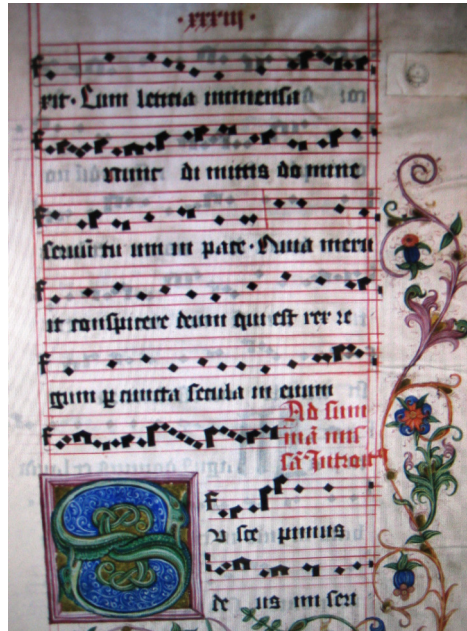 · xxxiii ·
rit · Cum leticia immensa
nunc di mittis domine
servum tu um in pace · Quia meru
it conspicere deum qui est rex re
gum per cuncta secula in evum
Ad sum
mam mis
sam Introit
S u sce pimus
de us mi seri